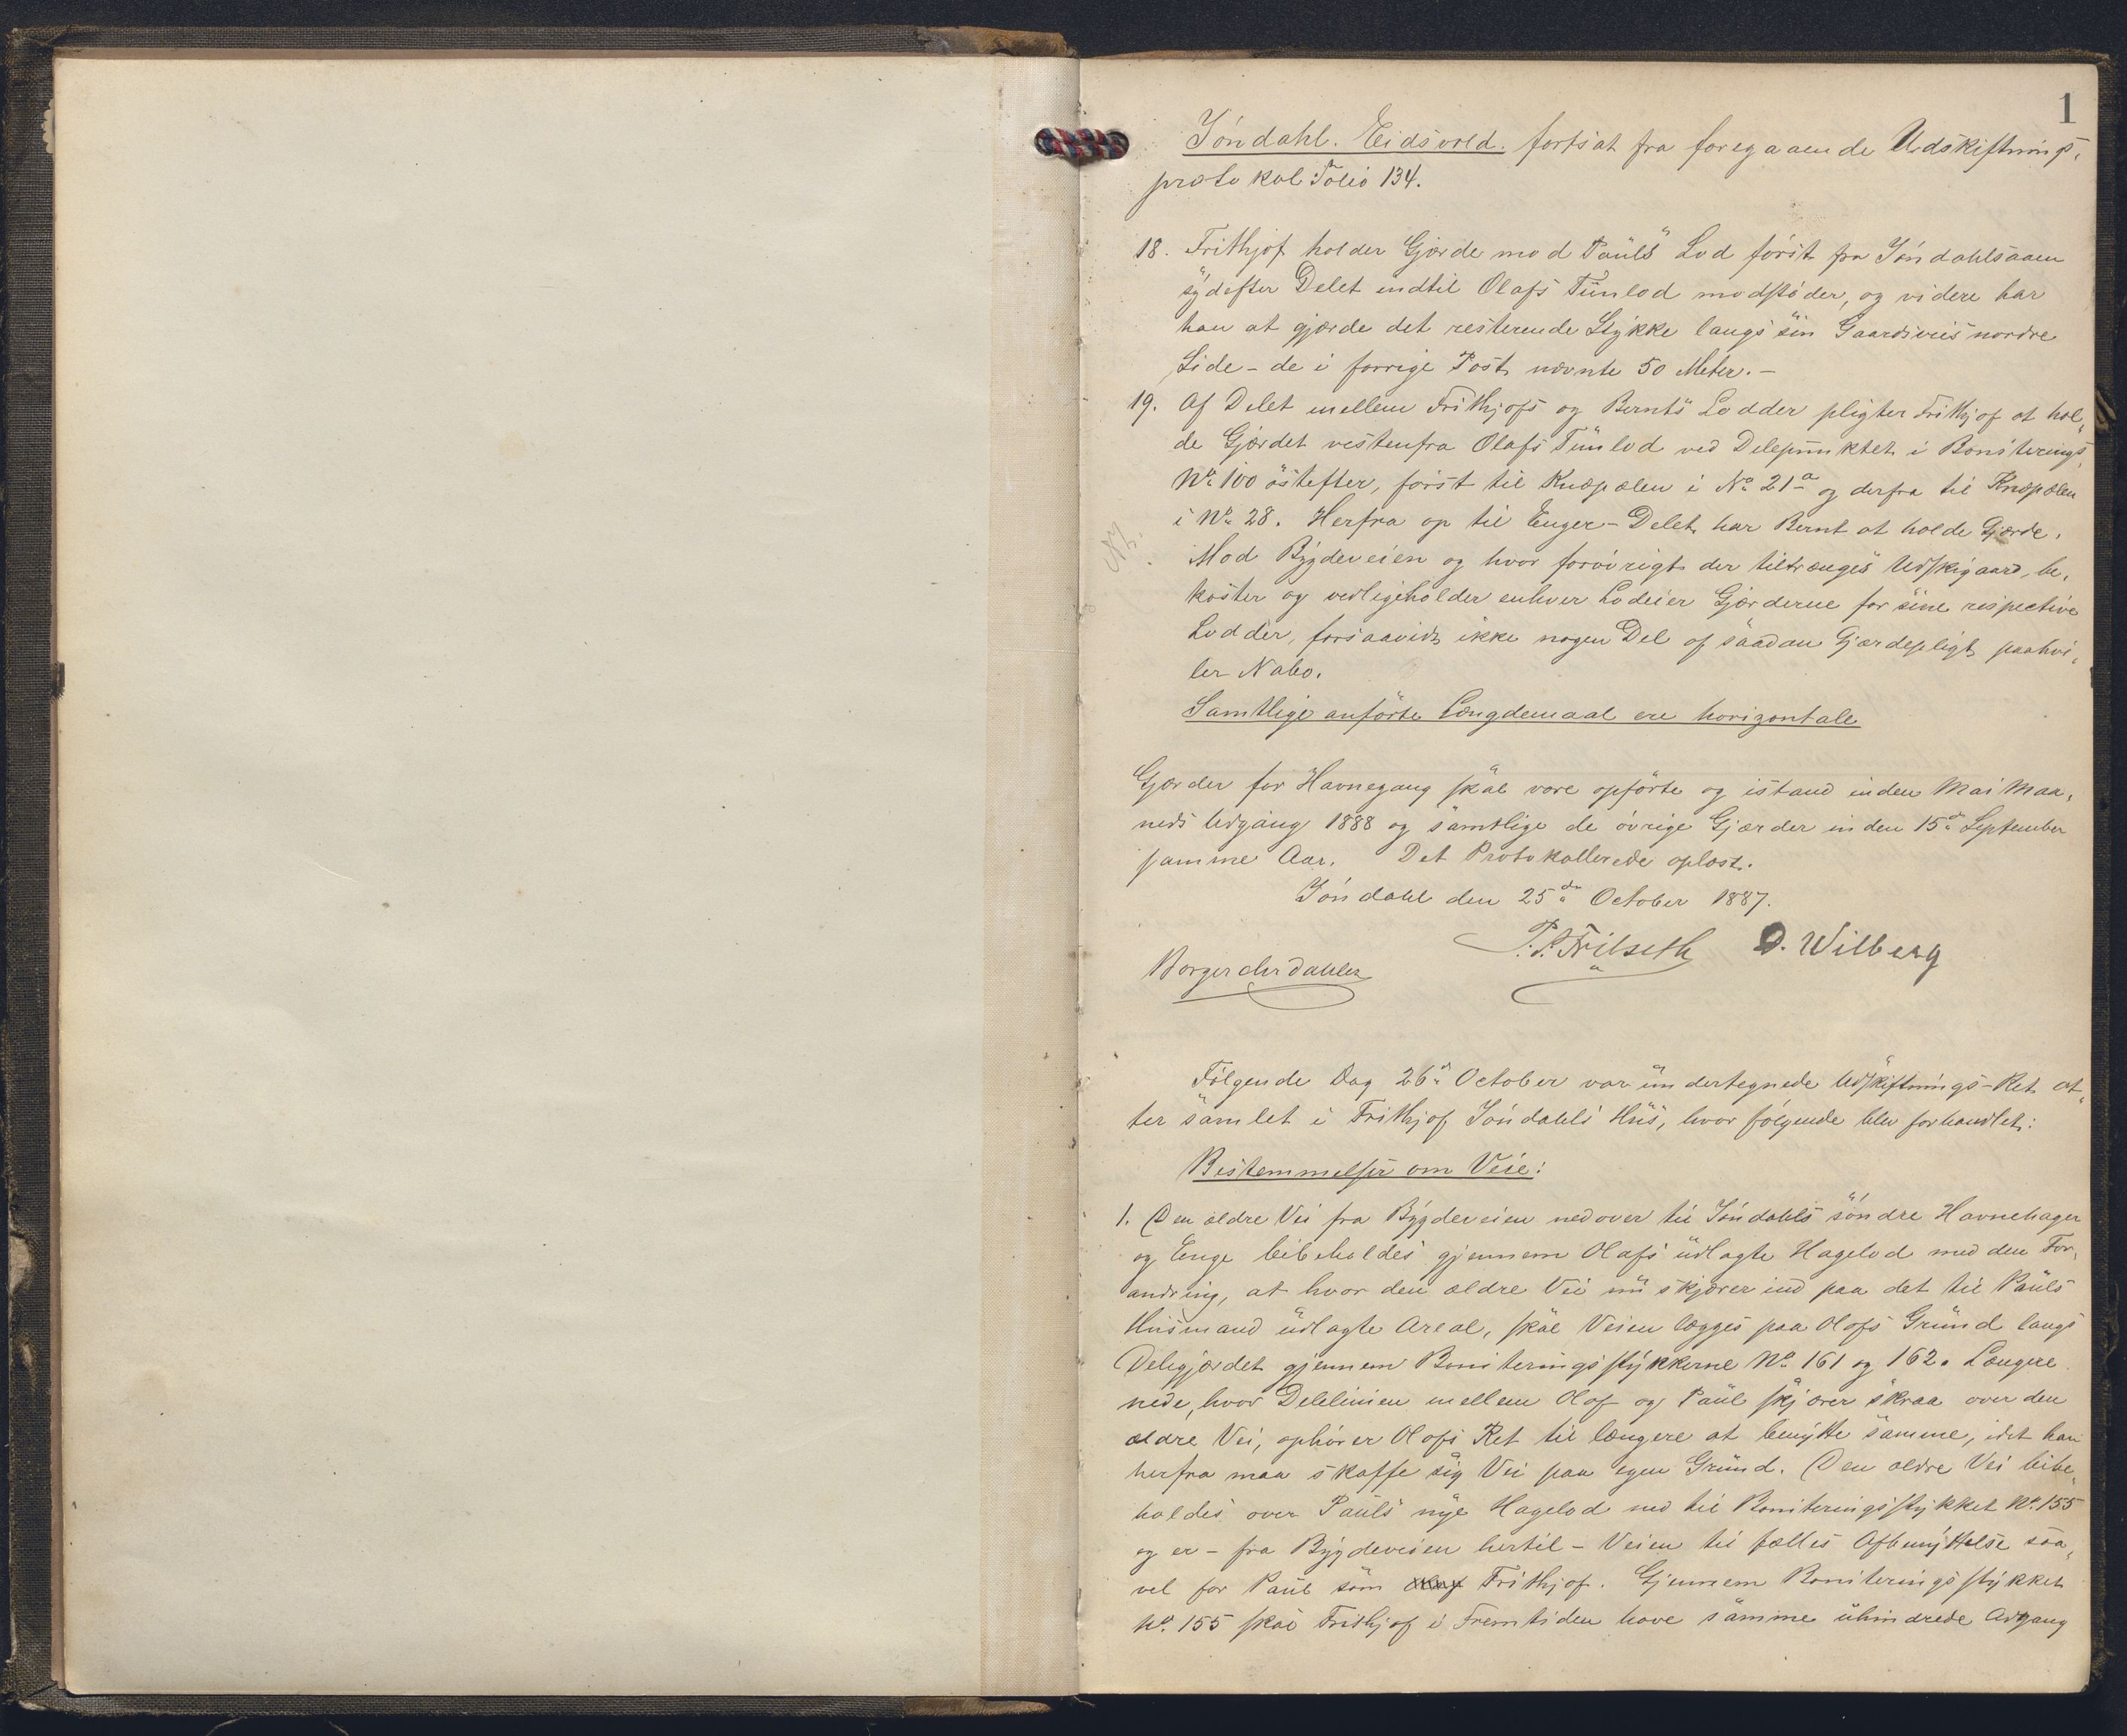 1
Jøndahl. Eidsvold. fortsat fra foregaaende Udskiftnings„
protokol Folio 134.
18. Frithjof holder Gjærde mod Pauls Lod først fra Jøndahlsaaen
sydefter Delet indtil Olafs Tunlod modstøder, og videre har
han at gjærde det resterende Stykke langs sin Gaardsveis nordre
Side - de i forrige Post nævnte 50 Meter. -
19. Af Delet mellem Frithjofs og Bernts Lodder pligter Frithjof at hol„
de Gjærdet vestenfra Olafs Tunlod ved Delepunktet i Boniterings„
No 100 østefter, først til Knæpælen i No 21a og derfra til Knæpælen
i No 28. Herfra op til Enger-Delet har Bernt at holde Gjærde.
Mod Bygdeveien og hvor forøvrigt der tiltrænges Udskigaard, be„
koster og vedligeholder enhver Lodeier Gjærderne for sine respective
Lodder, forsaavidt ikke nogen Del af saadan Gjærdepligt paahvi„
ler Nabo.
Samtlige anførte Længdemaal ere horizontale
Gjærder for Havnegang skal være opførte og istand inden Mai Maa„
neds Udgang 1888 og samtlige de øvrige Gjærder inden 15de September
samme Aar. Det Protokollerede oplæst.
Jøndahl den 25de October 1887.
P. P. Trilseth O. Wilberg
Borger Chr Dahler
Følgende Dag 26de October var undertegnede Udskiftnings-Ret at„
ter samlet i Frithjof Jøndahls Hus, hvor følgende blev forhandlet:
Bestemmelser om Veie:
1. Den ældre Vei fra Bygdeveien nedover til Jøndahls søndre Havnehager
og Enge bibeholdes gjennem Olafs udlagte Hagelod med den For„
andring, at hvor den ældre Vei nu skjærer ind paa det til Pauls
Husmand udlagte Areal, skal Veien lægges paa Olafs Grund langs
Delegjærdet gjennem Boniteringsstykkerne No 161 og 162. Længere
nede, hvor Delelinien mellem Olaf og Paul skjærer skraa over den
ældre Vei, ophører Olafs Ret til længere at benytte samme, idet han
herfra maa skaffe sig Vei paa egen Grund. Den ældre Vei bibe„
holdes over Pauls nye Hagelod ned til Boniteringsstykket No. 155
og er - fra Bygdeveien hertil - Veien til fælles Afbenyttelse saa„
vel for Paul som Olaf Frithjof. Gjennem Boniteringsstykket
No. 155 skal Frithjof i Fremtiden have samme uhindrede Adgang